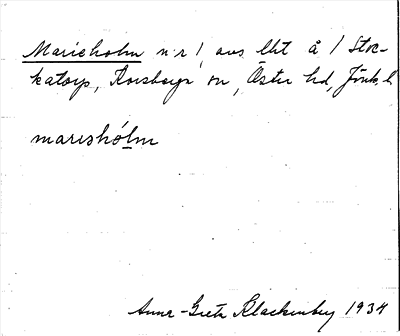 Marieholm nr 1, avs. lht å 1 Stoc-
katorp, Korsberga sn, Östra hd, Jönk. l.
mareshólm
Anna-Greta Klackenberg 1934